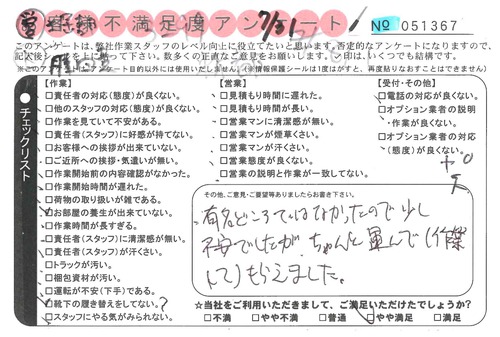 お客様不満足度アンケート
7/31
№ 051367
このアンケートは、弊社作業スタッフのレベル向上に役立てたいと思います。否定的なアンケートになりますので、
記入後シールを上に貼って下さい。数多くの正直なご意見をお願いします。✓印は、いくつでも結構です。
※このアンケートはアンケート目的以外には使用いたしません。(情報保護シールは1度はがすと、再度貼りなおすことはできません)
チェックリスト
【作業】
□責任者の対応(態度)が良くない。
□他のスタッフの対応(態度)が良くない。
□作業を見ていて不安がある。
□責任者(スタッフ)に好感が持てない。
□お客様への挨拶が出来ていない。
□ご近所への挨拶・気遣いが無い。
□作業開始前の内容確認がなかった。
□作業開始時間が遅れた。
□荷物の取り扱いが雑である。
□お部屋の養生が出来ていない。
□作業時間が長すぎる。
□責任者(スタッフ)に清潔感が無い。
□責任者(スタッフ)が汗くさい。
□トラックが汚い。
□梱包資材が汚い。
□運転が不安(下手)である。
□靴下の履き替えをしてない。?
□スタッフにやる気がみられない。
【営業】
□見積もり時間に遅れた。
□見積もり時間が長い。
□営業マンに清潔感が無い。
□営業マンが煙草くさい。
□営業マンが汗くさい。
□営業態度が良くない。
□営業の説明と作業が一致してない。
【受付・その他】
□電話の対応が良くない。
□オプション業者の説明
・作業が良くない。
□オプション業者の対応
(態度)が良くない。
その他、ご意見・ご要望等ありましたらお書き下さい。
有名どころではなかったので少し
不安でしたが、ちゃんと運んで(作業
して)もらえました。
☆当社をご利用いただきまして、ご満足いただけたでしょうか?
□不満 □やや不満 □普通 □やや満足 □満足